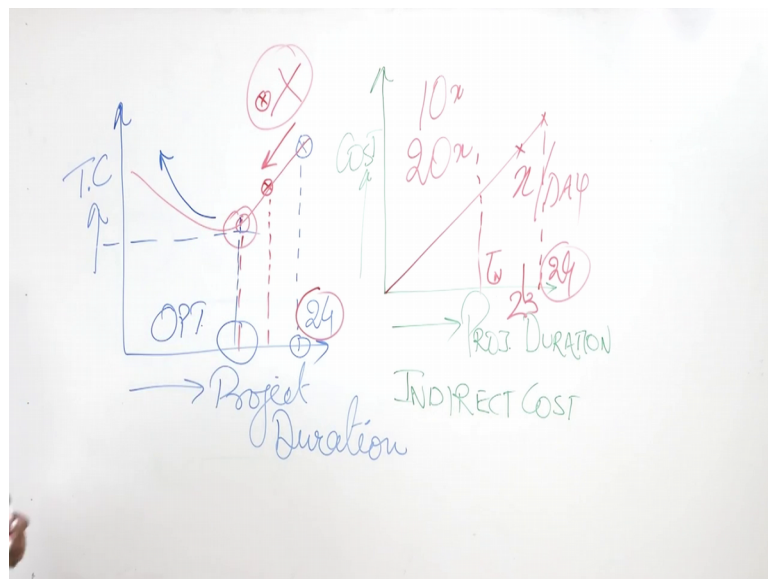 T.C
OPT.
24
Project
Duration
X
10x
20x
COST
x/DAY
TN
23
24
PROJ. DURATION
INDIRECT COST